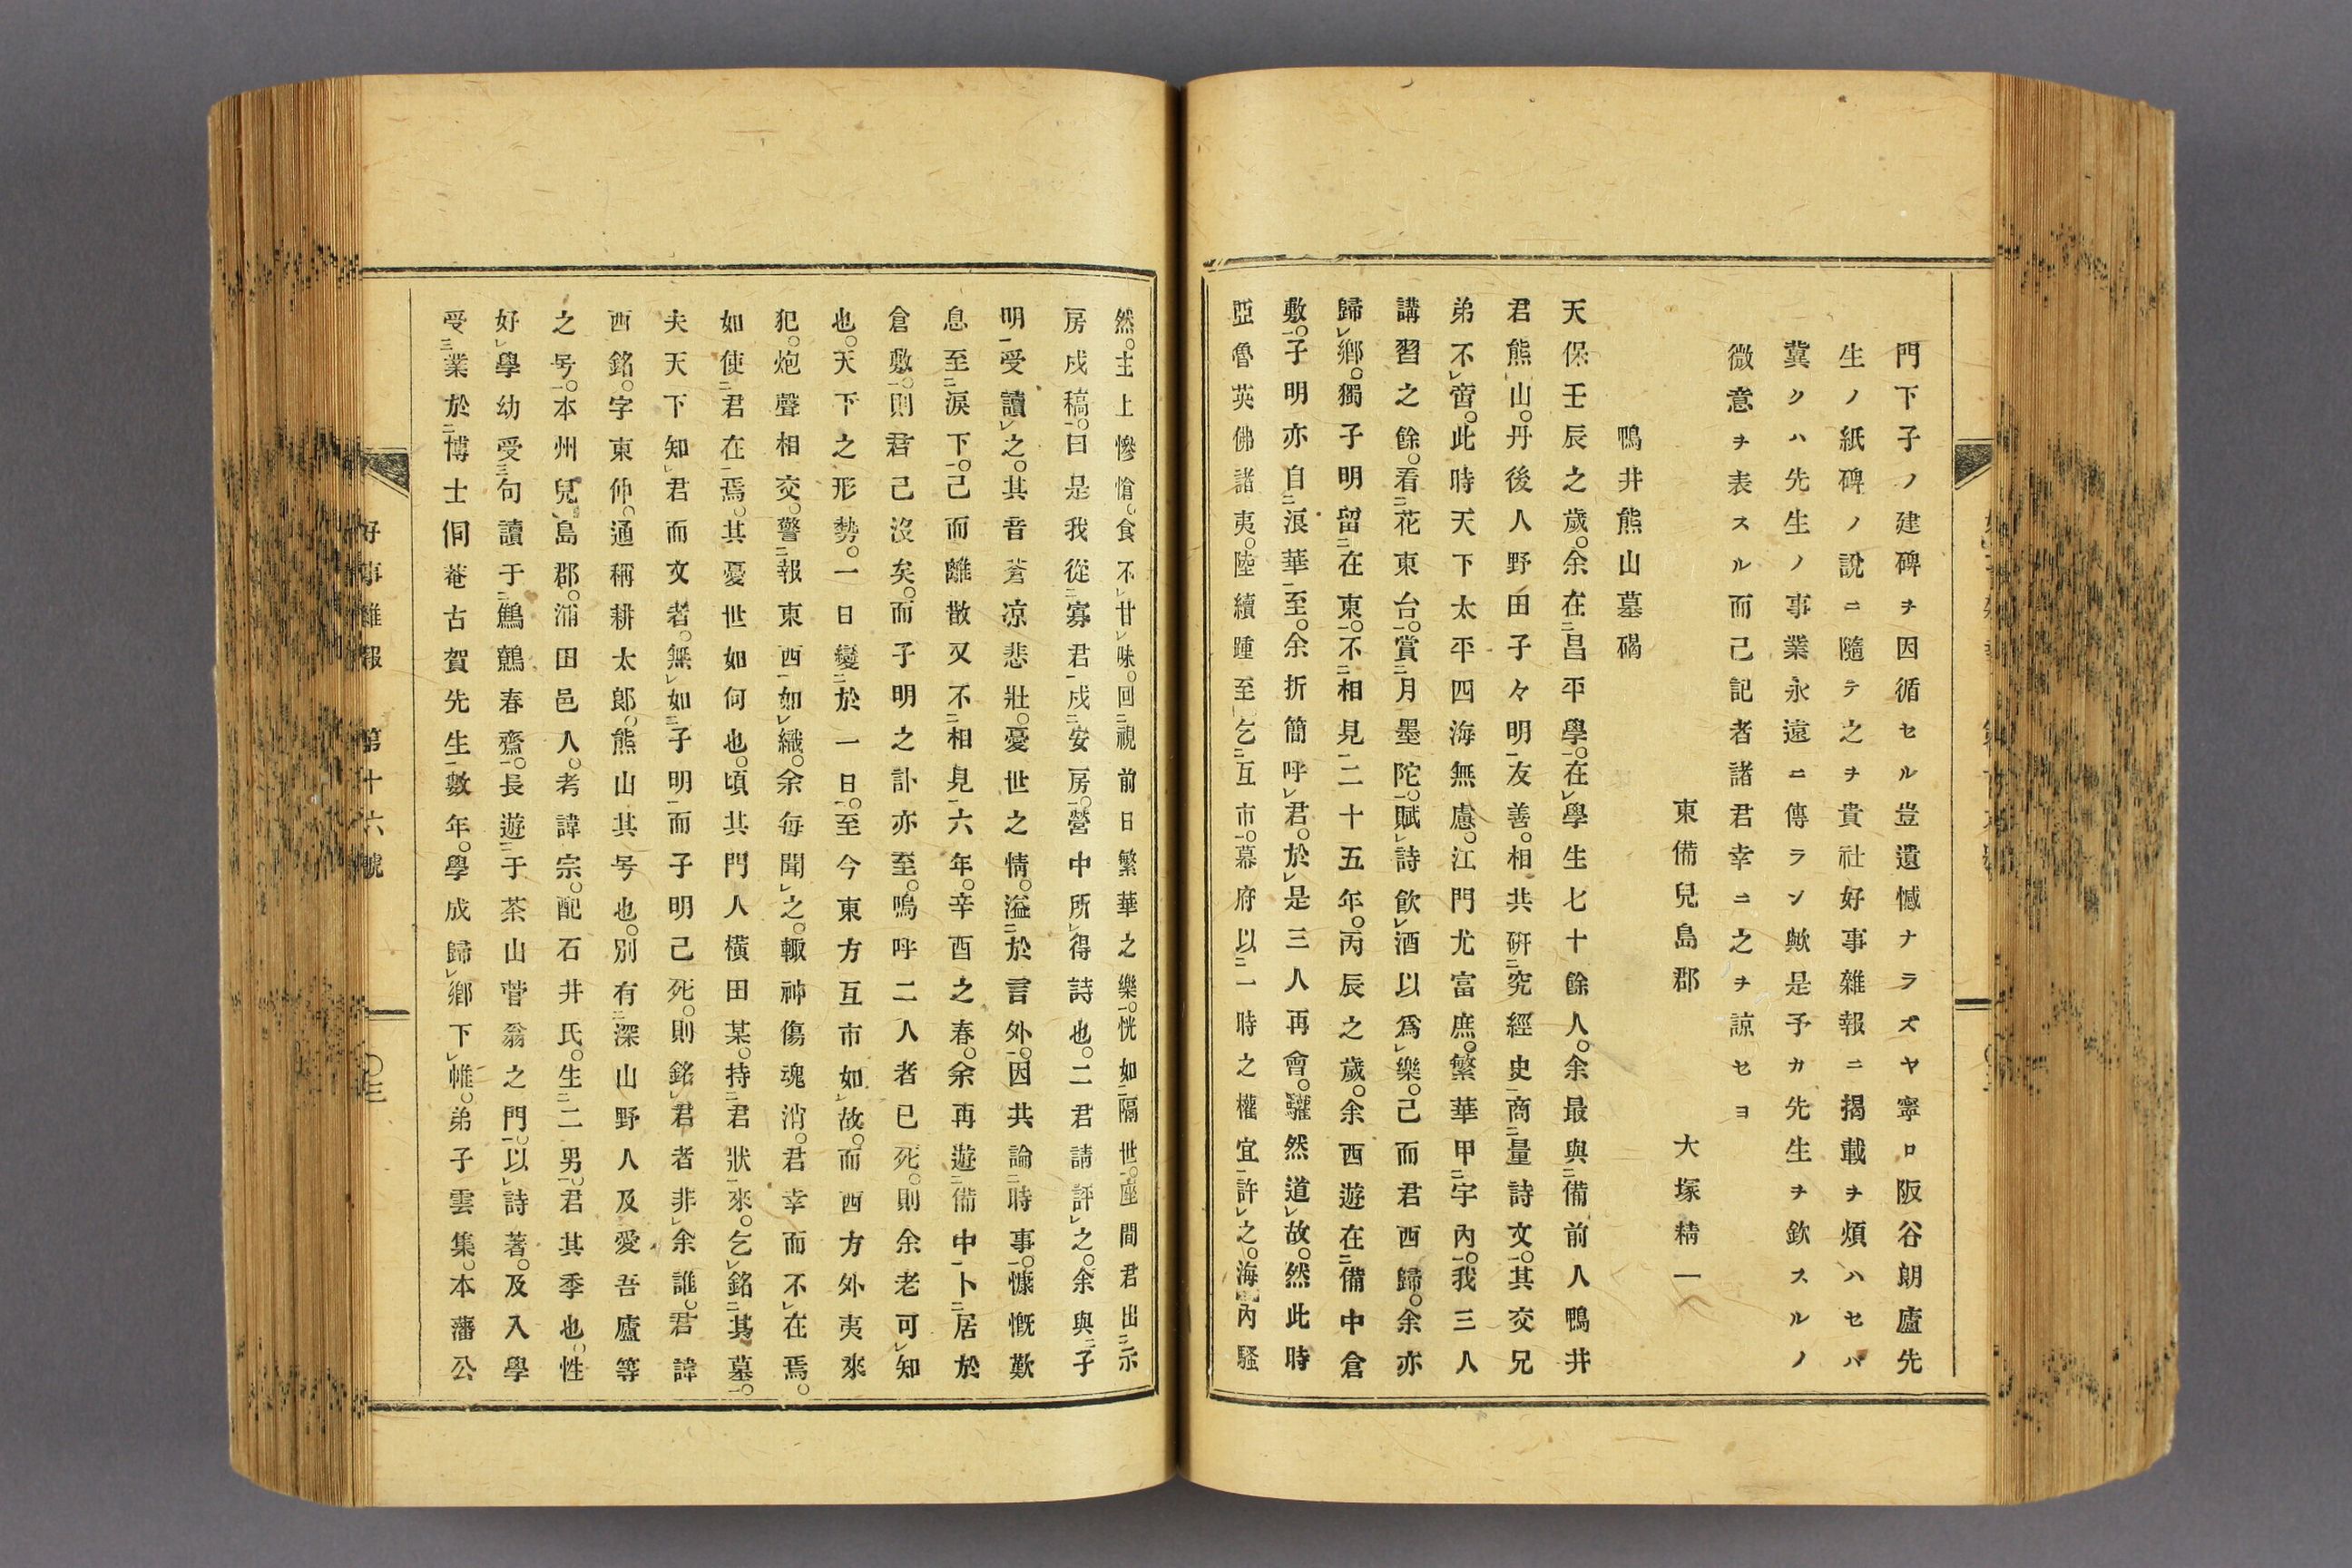 門下子ノ建碑ヲ因循セル豈遺憾ナラズヤ寧ロ阪谷朗廬先
生ノ紙碑ノ說ニ隨テ之ヲ貴社好事雜報ニ揭載ヲ煩ハセハ
冀クハ先生ノ事業永遠ニ傳ラン歟是予カ先生ヲ欽スルノ
微意ヲ表スル而己記者諸君幸ニ之ヲ諒セヨ
東備兒島郡 大塚精一
鴨井熊山墓碣
天保壬辰之歲。余在二昌平學一。在レ學生七十餘人。余最與二備前人鴨井
君熊山。丹後人野田子々明一友善。相共硏二究經史一商二量詩文一。其交兄
弟不レ啻。此時天下太平四海無慮。江門尤富庶。繁華甲二宇內一。我三人
講習之餘。看二花東台一。賞二月墨陀一。賦レ詩飮レ酒以爲レ樂。己而君西歸。余亦
歸レ鄕。獨子明留二在東一。不二相見一二十五年。丙辰之歲。余西遊在二備中倉
敷一。子明亦自二浪華一至。余折簡呼レ君。於レ是三人再會。驩然道レ故。然此時
亞魯英佛諸夷。陸續踵至乞二互市一。幕府以二一時之權宜一許レ之。海內騷
然。主上慘愴。食不レ甘レ味。回二視前日繁華之樂一。恍如二隔世一。座間君出三示
房戍稿一。曰是我從二寡君一戍二安房一。營中所レ得詩也。二君請評レ之。余與二子
明一受讀レ之。其音蒼凉悲壯。憂世之情。溢二於言外一。因共論二時事一。慷慨歎
息至二淚下一。己而離散又不二相見一六年。辛酉之春。余再遊二備中一卜二居於
倉敷一。則君己沒矣。而子明之訃亦至。嗚呼二人者已死。則余老可レ知
也。天下之形勢。一日變二於一日一。至今東方互市如レ故。而西方外夷來
犯。炮聲相交。警二報東西一如レ織。余每聞レ之。輙神傷魂消。君幸而不レ在焉。
如使二君在一焉。其憂世如何也。頃其門人橫田某。持二君狀一來。乞レ銘二其墓一。
夫天下知レ君而文者。無レ如二子明一而子明己死。則銘レ君者非レ余誰。君諱
西銘。字東仲。通稱耕太郞。熊山其号也。別有二深山野人及愛吾廬等
之号一。本州兒島郡。浦田邑人。考諱宗。配石井氏。生二二男一。君其季也。性
好レ學幼受三句讀于二鷦鷯春齋一。長遊二于茶山菅翁之門一。以レ詩著。及入學
受三業於二博士侗菴古賀先生一數年。學成歸レ鄕下レ帷。弟子雲集。本藩公
好事雜報 第十六號 〇三